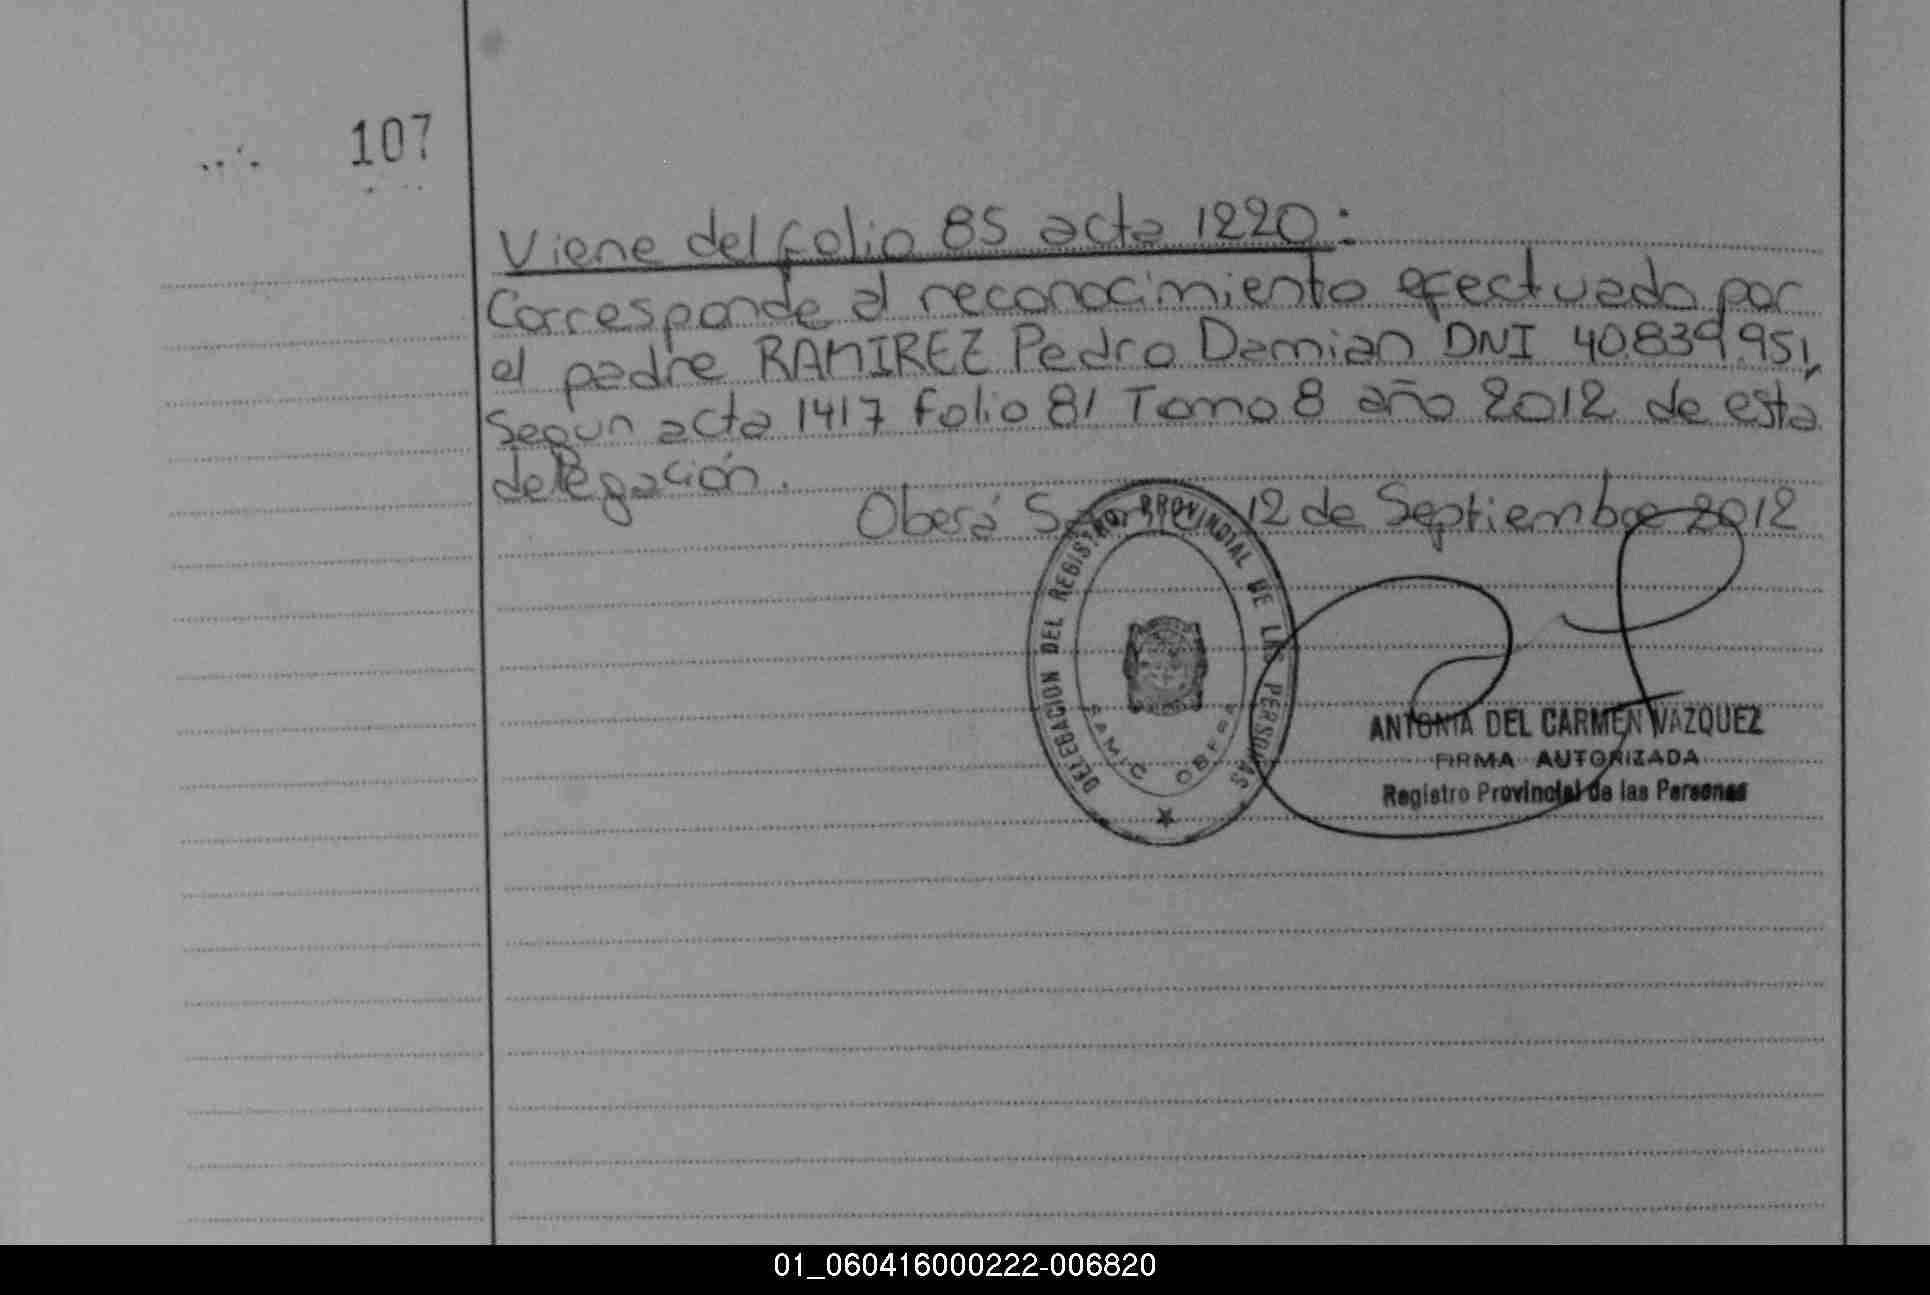 107
Viene del folio 85 acta 1220:
Corresponde al reconocimiento efectuado por
el padre RAMIREZ Pedro Damian DNI 40.839.951,
Segun acta 1417 folio 81 Tomo 8 año 2012 de esta
delegación.
Oberá 12 de Septiembre 2012
DELEGACION DEL REGISTRO PROVINCIAL DE LAS PERSONAS
SAMIC OBERA
ANTONIA DEL CARMEN VAZQUEZ
FIRMA AUTORIZADA
Registro Provincial de las Personas
01_060416000222-006820